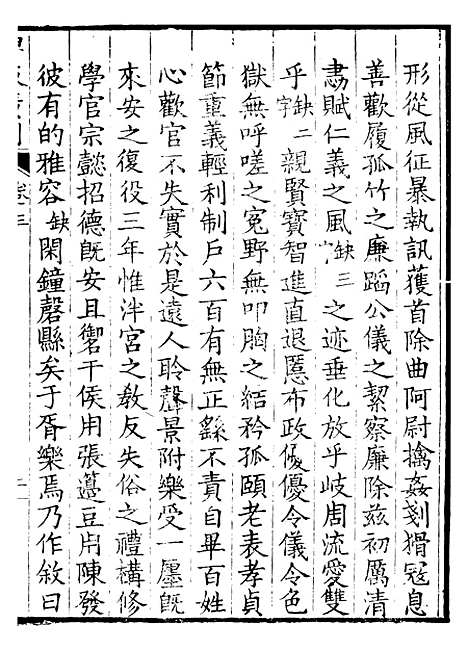 形從風征暴執訊獲首除曲阿尉擒姦剗猾冦息
善歡履孤竹之廉蹈公儀之絜察廉除兹初厲清
肅賦仁義之風缺三之迹垂化放乎岐周流愛雙
乎缺二字親賢寶智進直退慝布政優優令儀令色
獄無呼嗟之冤野無叩胸之結矜孤頤老表孝貞
節重義輕利制戶六百有無正繇不責自畢百姓
心歡官不失實於是遠人聆聲景附樂受一廛旣
來安之復役三年惟泮宮之教反失俗之禮構修
學官宗懿招德旣安且寧干侯用張籩豆用陳發
彼有的雅容缺閑鐘磬縣矣于胥樂焉乃作敘曰
卷三